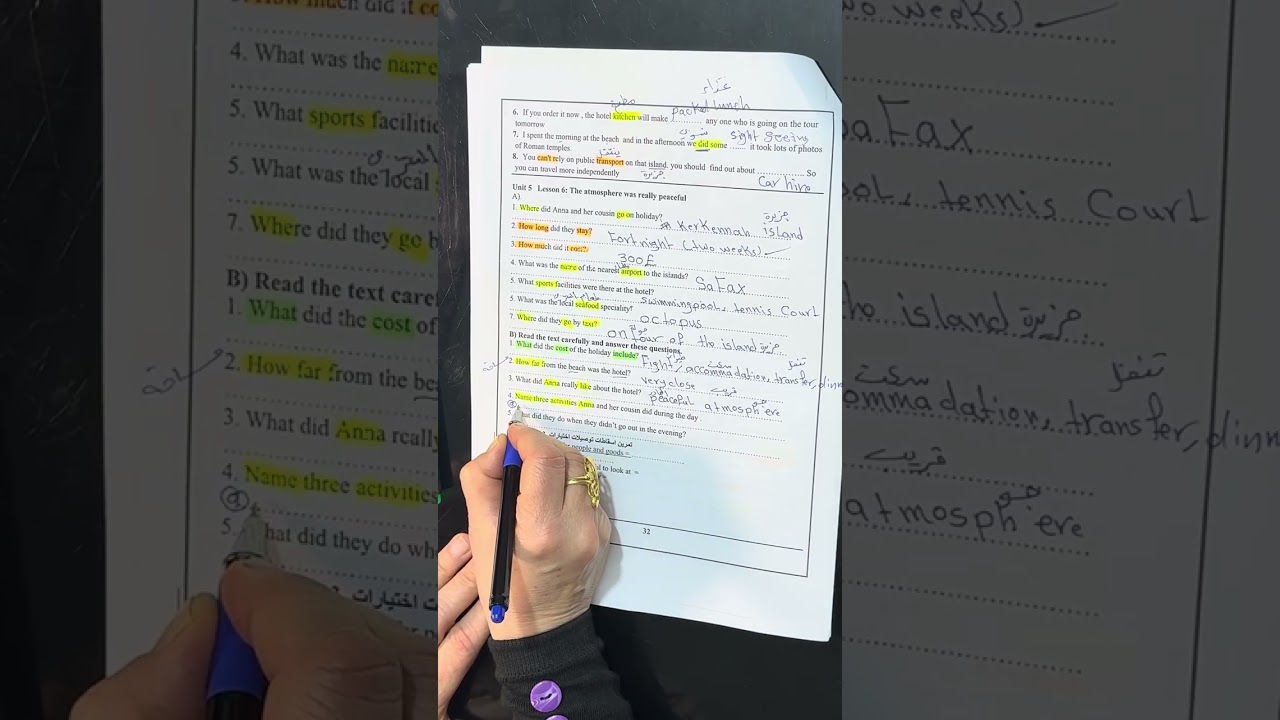 غداء
مطبخ packed lunch
6. If you order it now , the hotel kitchen will make ........... any one who is going on the tour
tomorrow
sight seeing
7. I spent the morning at the beach and in the afternoon we did some ...... it took lots of photos
of Roman temples.
8. You can't rely on public transport on that island, you should find out about ............... So
جزيرة
you can travel more independently
Car hire
Unit 5 Lesson 6: The atmosphere was really peaceful
A)
1. Where did Anna and her cousin go on holiday?
KerKennah Island جزيرة
2. How long did they stay?
Fortnight (two weeks)
3. How much did it cost?
300£
4. What was the name of the nearest airport to the islands?
Safax
5. What sports facilities were there at the hotel?
swimmingpool, tennis Court
5. What was the local seafood speciality?
octopus
7. Where did they go by taxi?
on tour of the island جزيرة
B) Read the text carefully and answer these questions.
1. What did the cost of the holiday include?
accommadation, transfer, dinn
2. How far from the beach was the hotel?
very close قريب
3. What did Anna really like about the hotel?
peaceful atmosphere جو
4. Name three activities Anna and her cousin did during the day
5. did they do when they didn't go out in the evening?
تمرين اسقاطات توصيلات اختيارات
people and goods =
to look at =
32